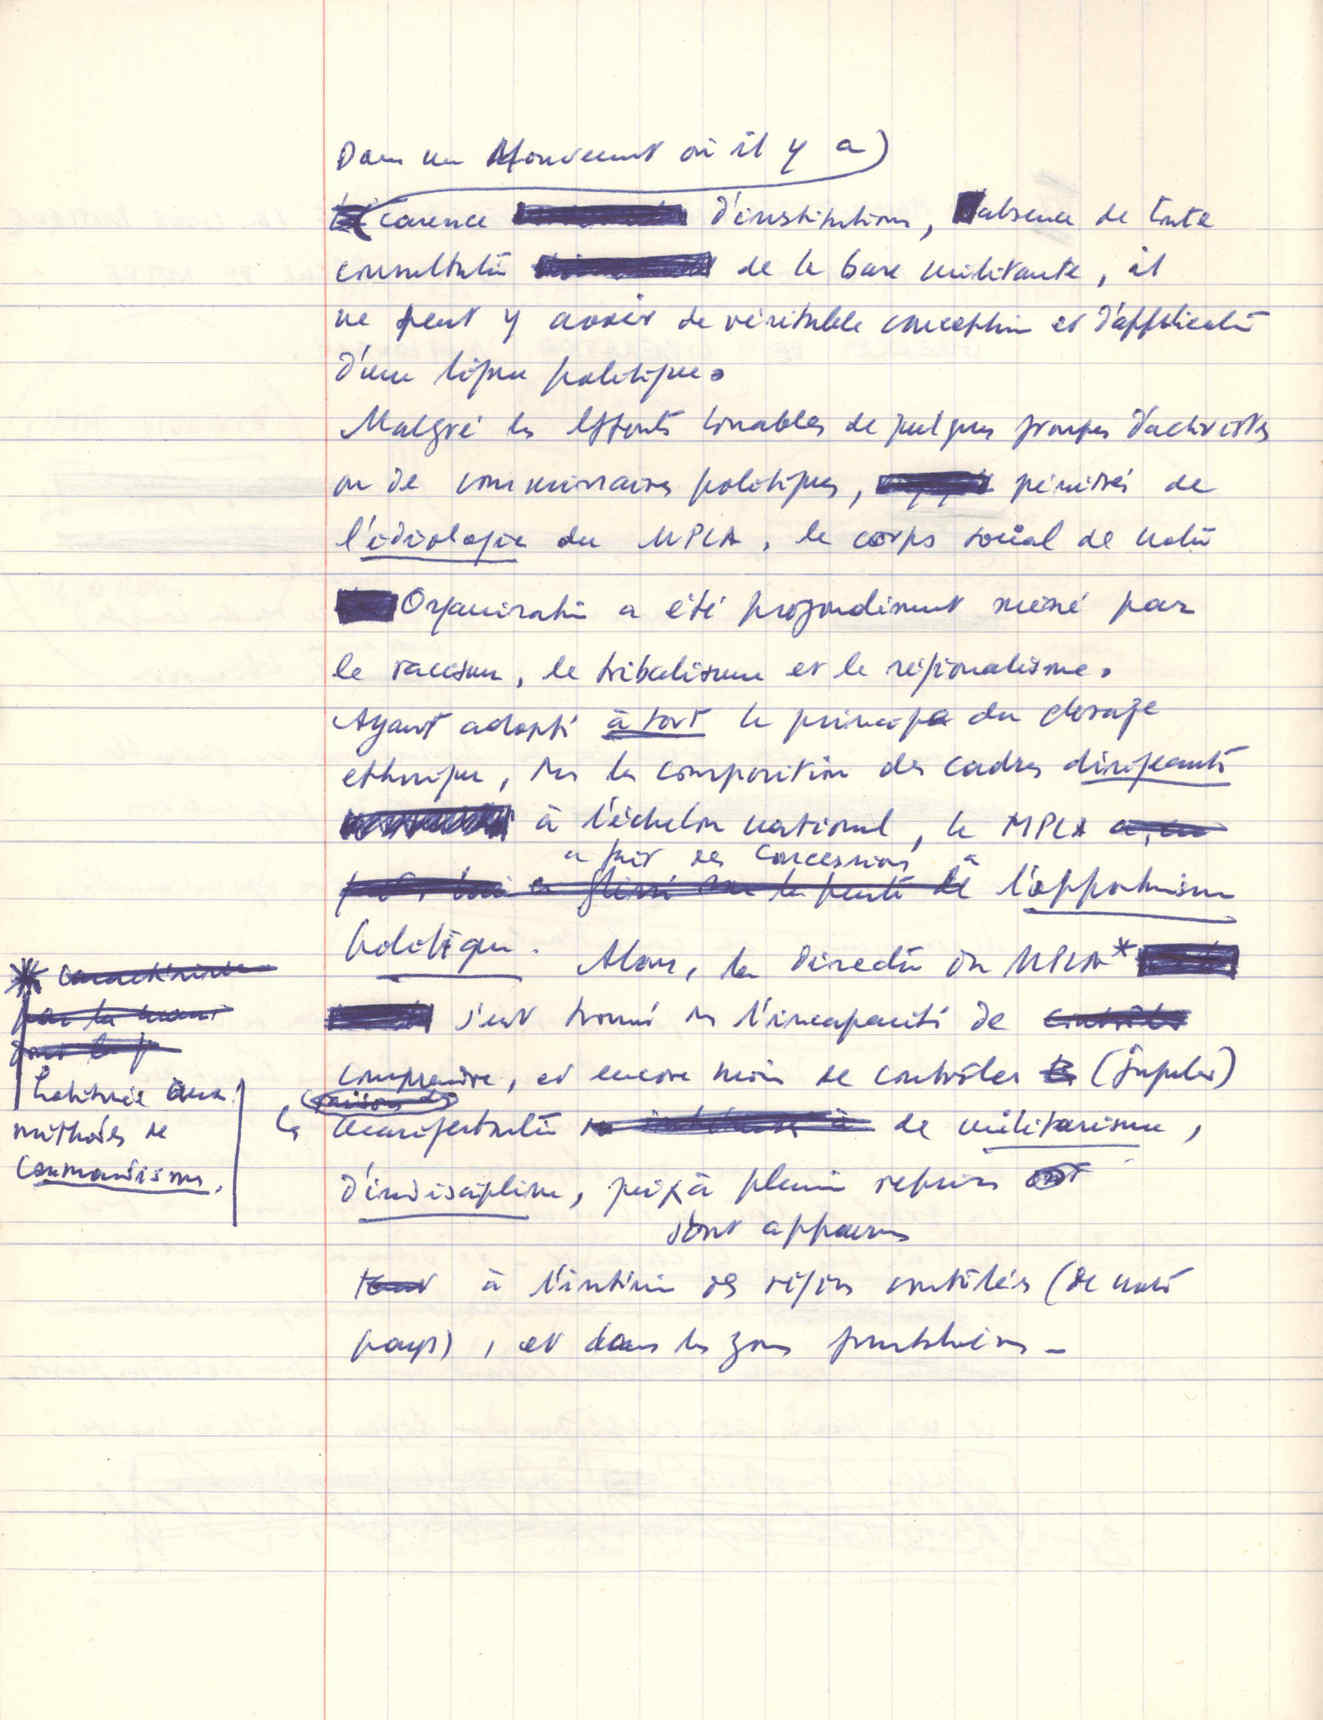 Dans un Mouvement où il y a
carence d'institutions, absence de toute
consultation de la base militante, il
ne peut y avoir de véritable conception et d'application
d'une ligne politique.
Malgré les efforts louables de quelques groupes d'activistes
ou de commissaires politiques, pénétrés de
l'idéologie du MPLA, le corps social de notre
Organisation a été profondément miné par
le racisme, le tribalisme et le régionalisme.
Ayant adopté à tort le principe du dosage
ethnique, ds la composition des cadres dirigeants
à l'échelon national, le MPLA
a fait des concessions à
l'opportunisme
politique. Alors, la direction du MPLA*
s'est trouvée ds l'incapacité de
comprendre, et encore moins de contrôler (juguler)
les manifestations de militarisme,
d'indiscipline, qui, à plein
sont apparues
à l'intérieur des régions contrôlées (de notre
pays), et dans les zones frontalières -
*
habituée aux
méthodes de
commandisme.